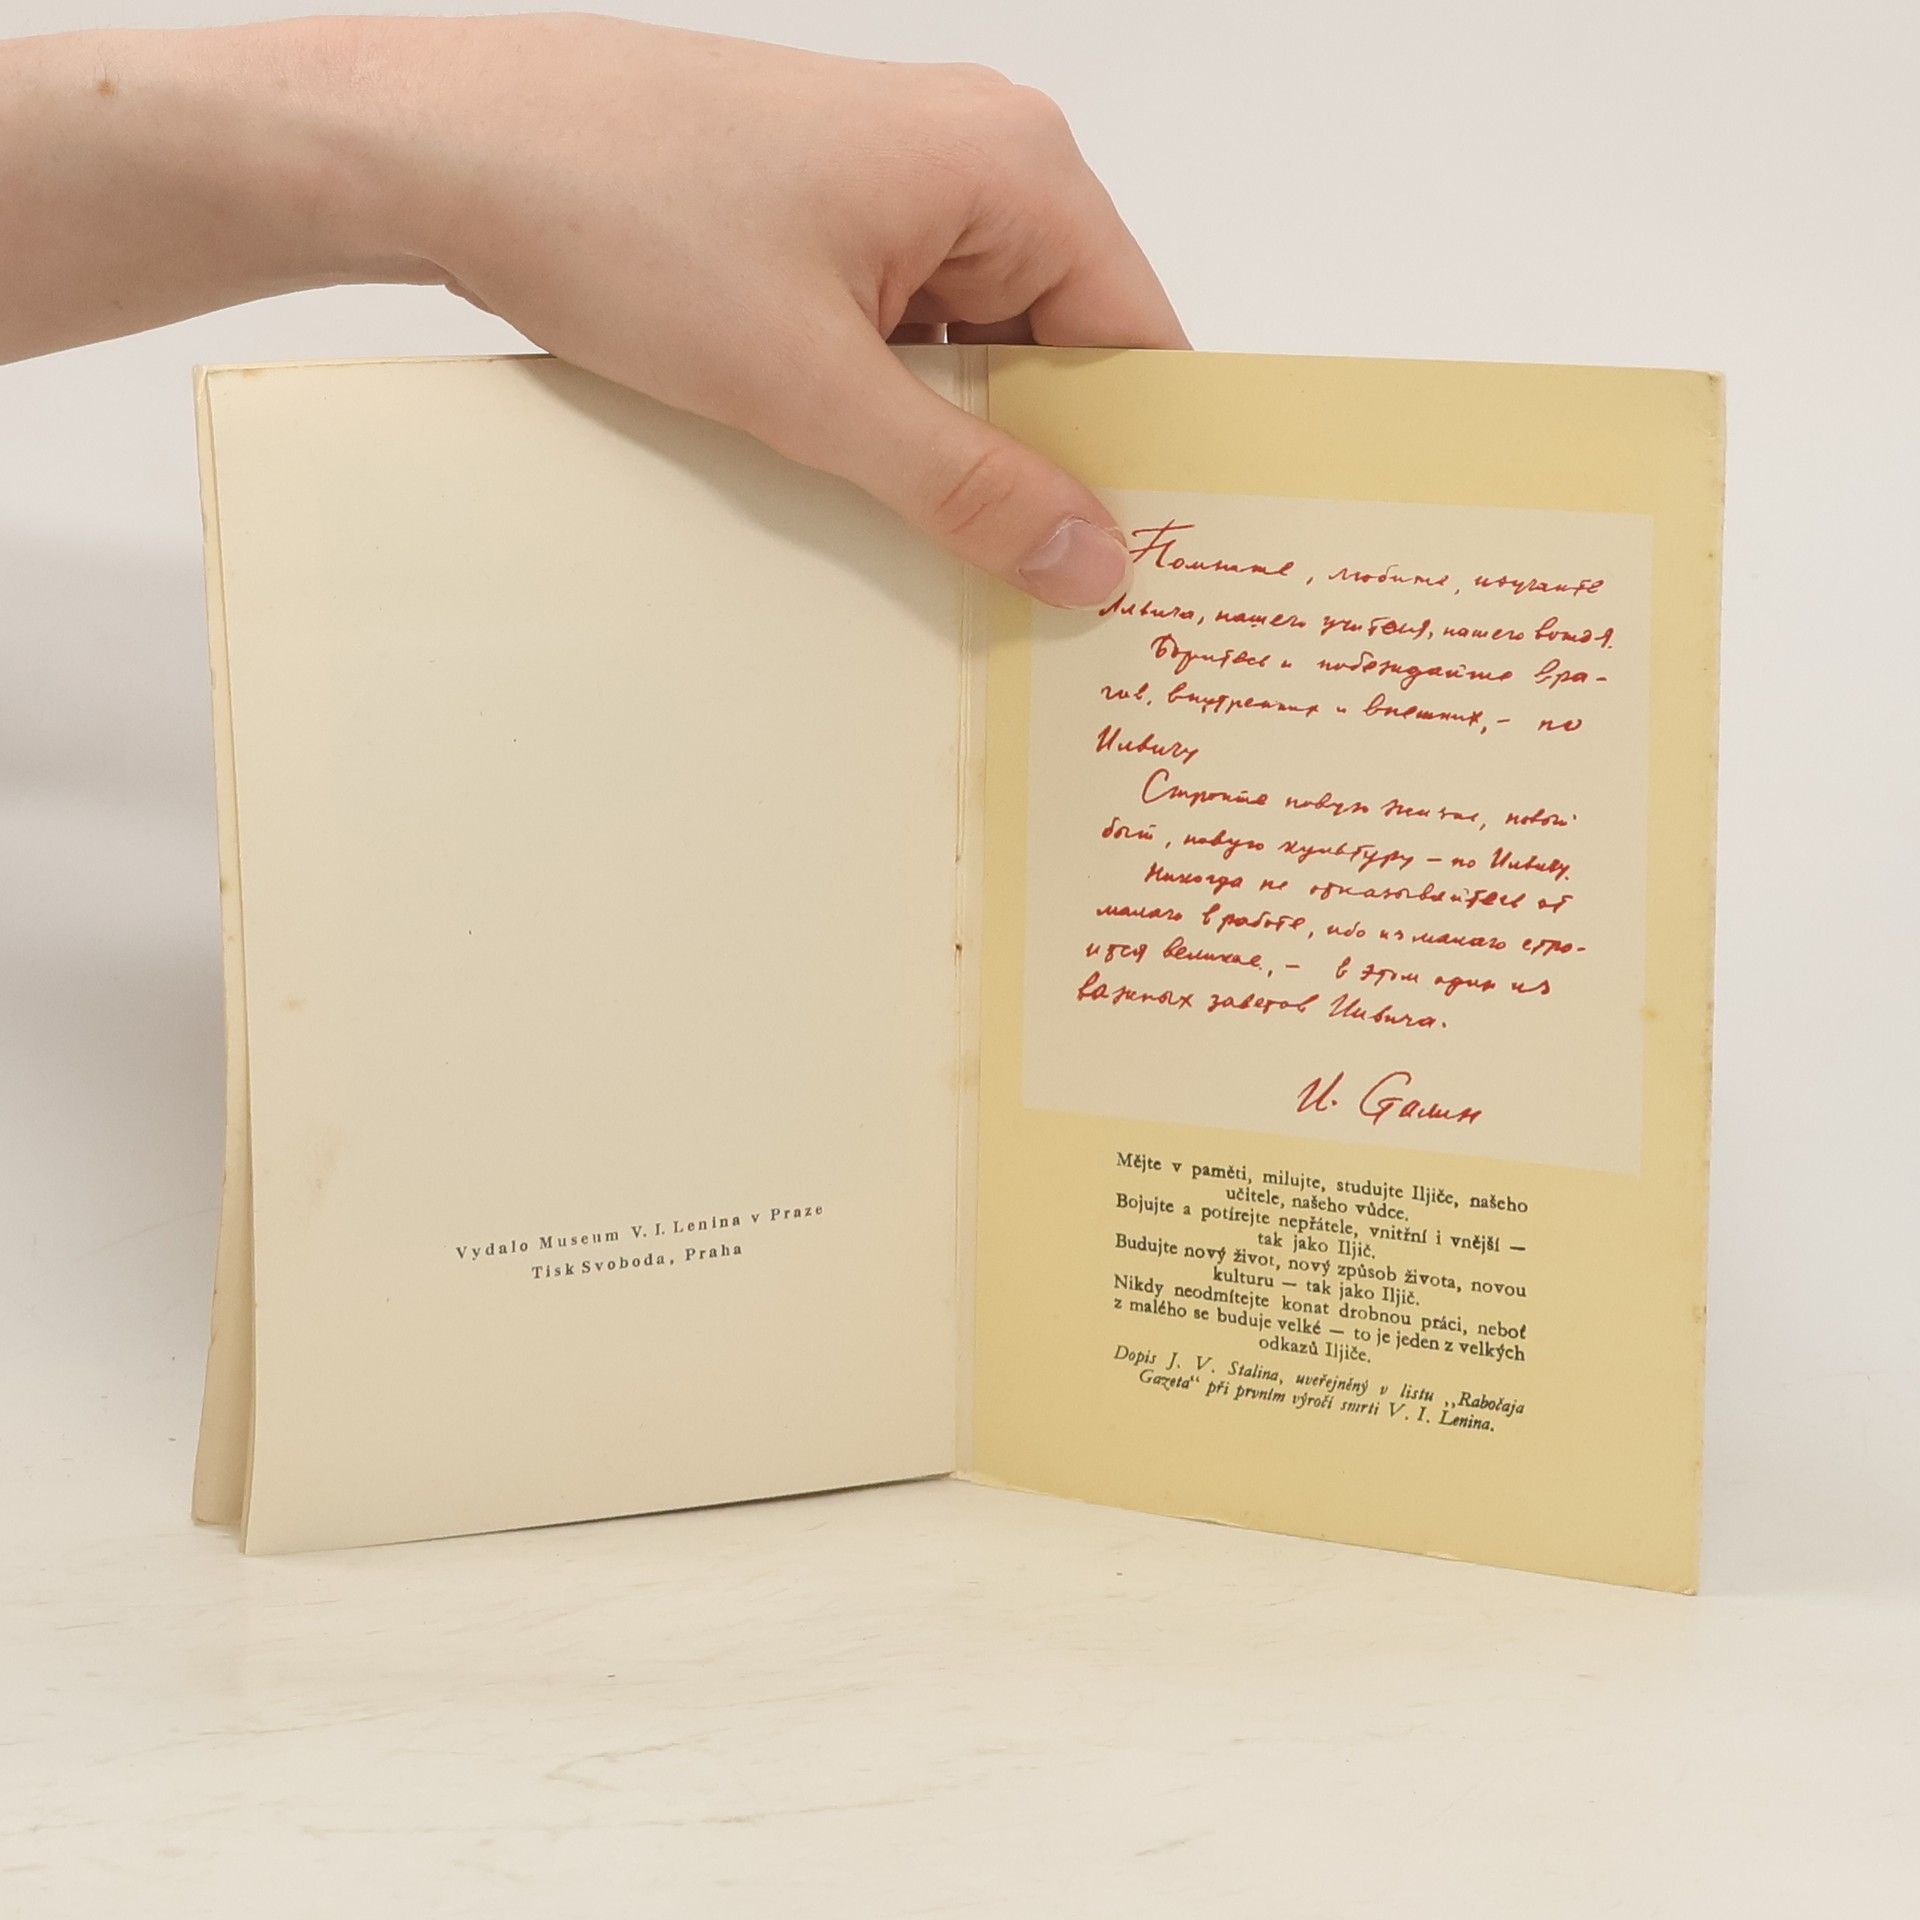 Vydalo Museum V. I. Lenina v Praze
Tisk Svoboda, Praha
Помните, любите, изучайте
Ильича, нашего учителя, нашего вождя.
Боритесь и побеждайте вра-
гов, внутренних и внешних, – по
Ильичу
Стройте новую жизнь, новый
быт, новую культуру – по Ильичу.
Никогда не отказывайтесь от
малого в работе, ибо из малого стро-
ится великое, – в этом один из
важных заветов Ильича.
И. Сталин
Mějte v paměti, milujte, studujte Iljiče, našeho
učitele, našeho vůdce.
Bojujte a potírejte nepřátele, vnitřní i vnější —
tak jako Iljič.
Budujte nový život, nový způsob života, novou
kulturu — tak jako Iljič.
Nikdy neodmítejte konat drobnou práci, neboť
z malého se buduje velké — to je jeden z velkých
odkazů Iljiče.
Dopis J. V. Stalina, uveřejněný v listu „Rabočaja
Gazeta“ při prvním výročí smrti V. I. Lenina.